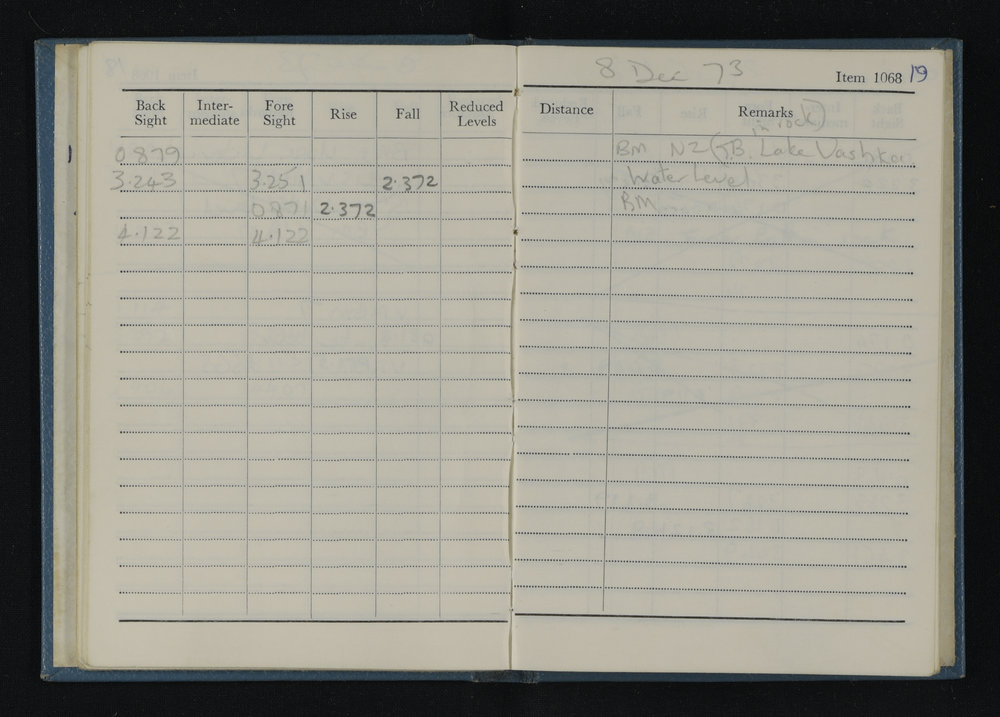 8 Dec 73
Item 1068 19
Back Sight Inter-mediate Fore Sight Rise Fall Reduced Levels Distance Remarks
in rock
0.879 BM NZ B. Lake Vashka
3.243 3.251 2.372 Water Level
0.871 2.372 BM
4.122 4.122